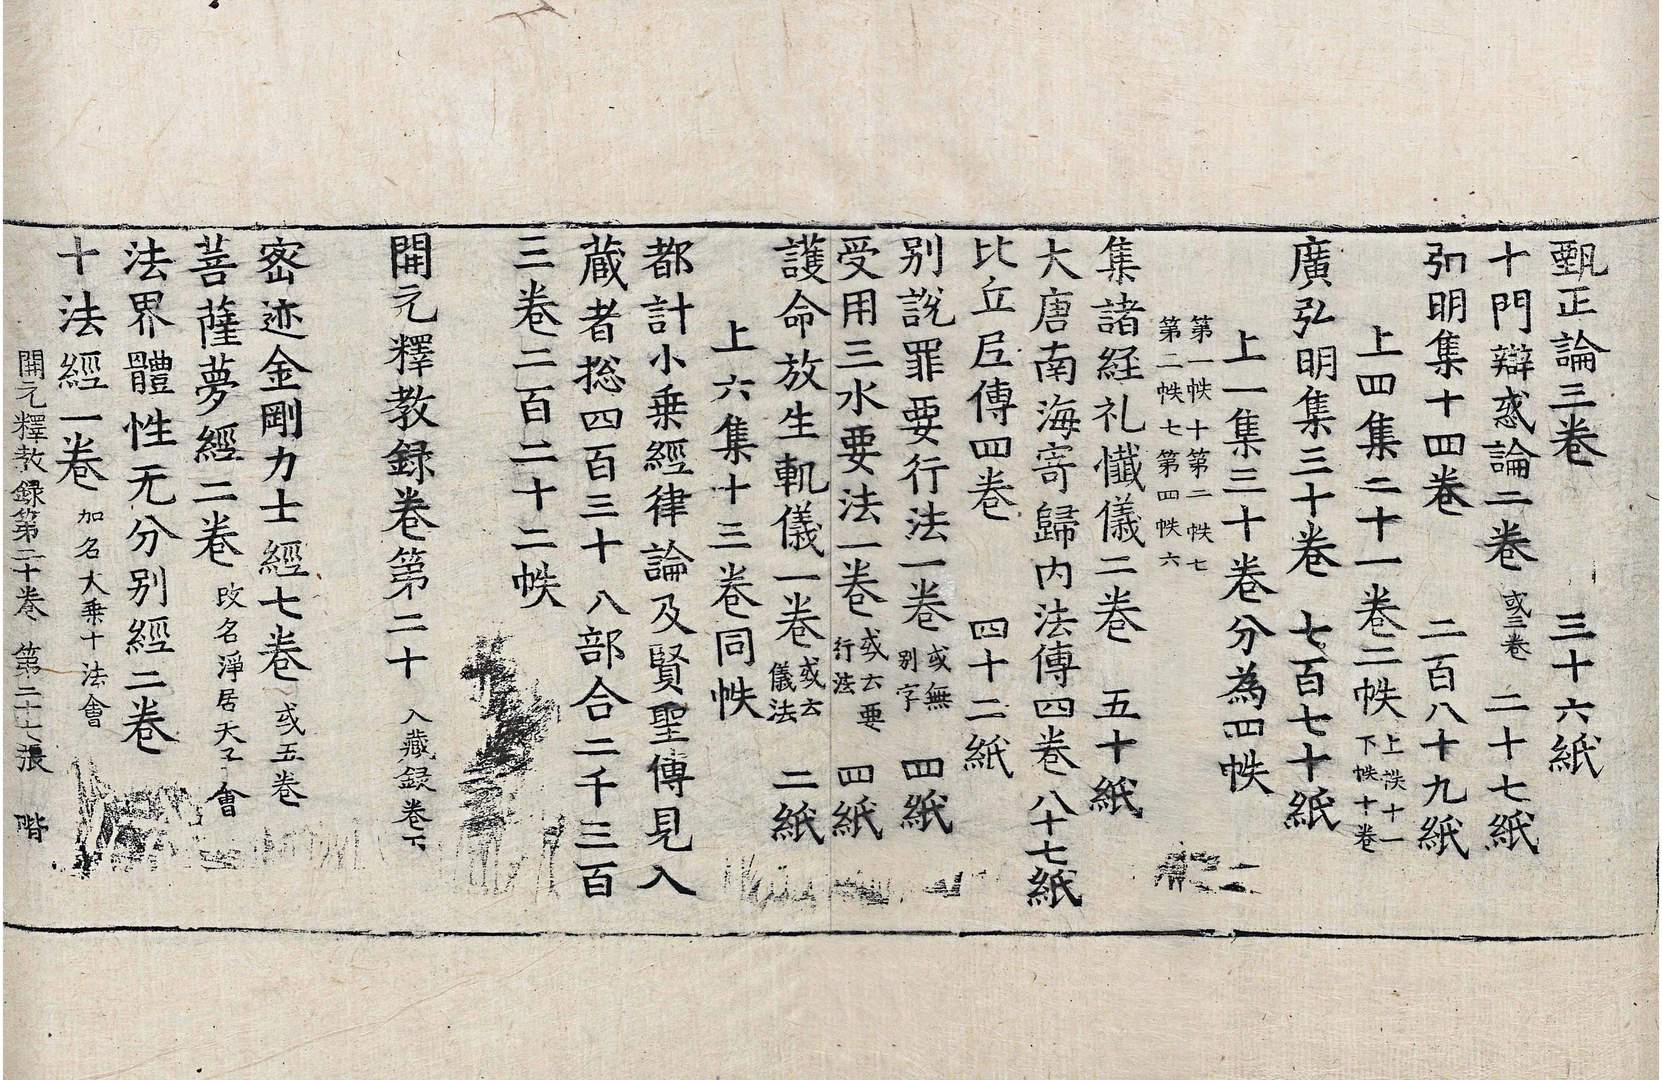 甄正論三卷　三十六紙
十門辯惑論二卷 或三卷　二十七紙
弘明集十四卷　二百八十九紙
上四集二十一卷二帙 上帙十一 下帙十卷
廣弘明集三十卷　七百七十紙
上一集三十卷分為四帙
第一帙十第二帙七
第二帙七第四帙六
集諸経礼懺儀二卷　五十紙
大唐南海寄歸内法傳四卷　八十七紙
比丘尼傳四卷　四十二紙
别說罪要行法一卷 或無别字　四紙
受用三水要法一卷 或云要行法　四紙
護命放生軌儀一卷 或云儀法　二紙
上六集十三卷同帙
都計小乗經律論及賢聖傳見入
蔵者捴四百三十八部合二千三百
三卷二百二十二帙
開元釋教録卷第二十 入藏録卷下
密迹金剛力士經七卷 或五卷
菩薩夢經二卷 改名淨居天子會
法界體性无分别經二卷
十法經一卷 加名大乗十法會
開元釋教録第二十卷　第二十七張　階